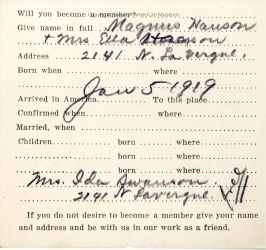 Will you become a member?
Give name in full Magnus Hanson
+ Mrs Ella Hanson
Address 2141 N. Lavergne.
Born when where
Jan 5 1919
Arrived in America To this place
Confirmed when where
Married, when where
Children born where
born where
born where
Mrs. Ida Swanson.
2141 N Lavergne.
If you do not desire to become a member give your name
and address and be with us in our work as a friend.